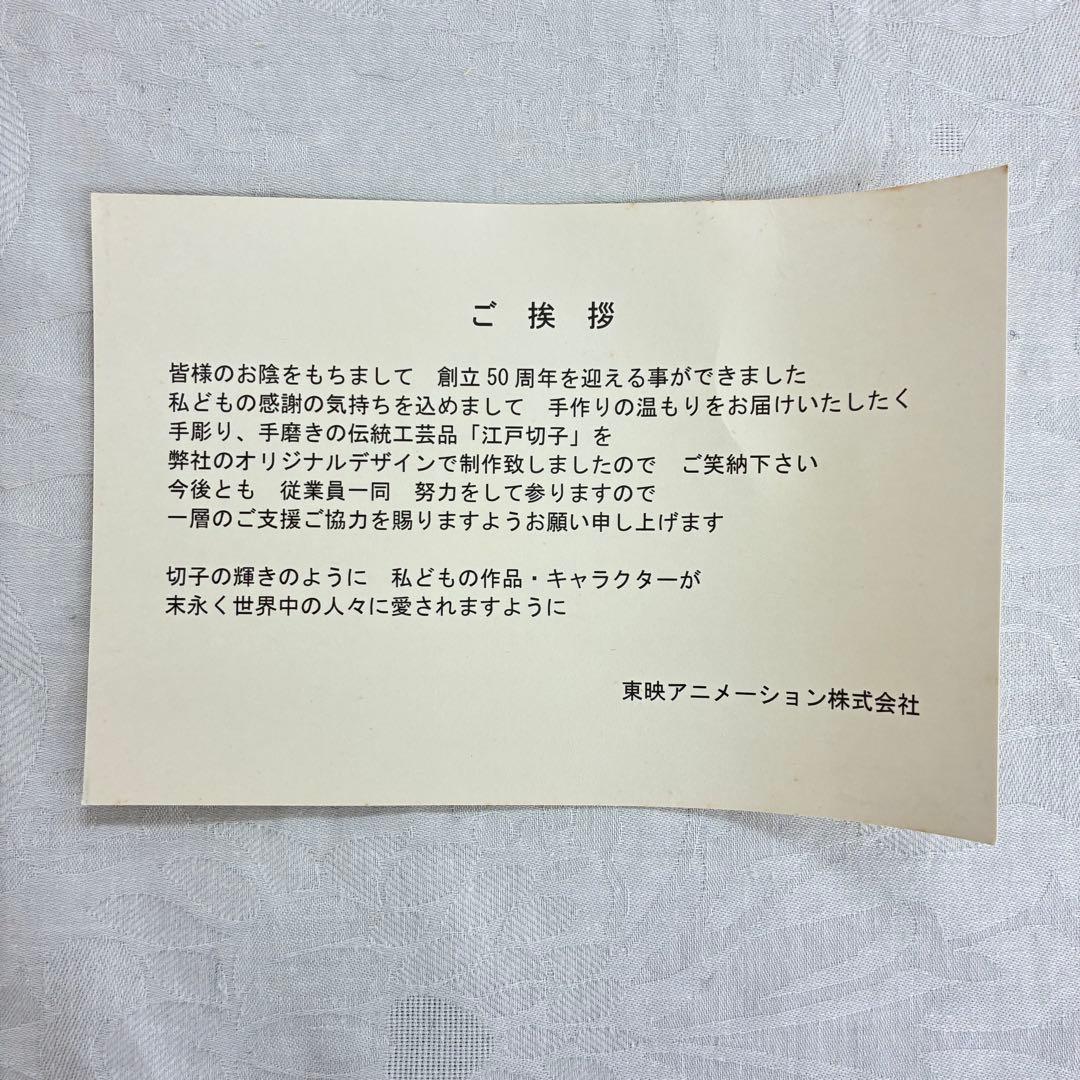 ご 挨 拶
皆様のお陰をもちまして　創立50周年を迎える事ができました
私どもの感謝の気持ちを込めまして　手作りの温もりをお届けいたしたく
手彫り、手磨きの伝統工芸品「江戸切子」を
弊社のオリジナルデザインで制作致しましたので　ご笑納下さい
今後とも　従業員一同　努力をして参りますので
一層のご支援ご協力を賜りますようお願い申し上げます
切子の輝きのように　私どもの作品・キャラクターが
末永く世界中の人々に愛されますように
東映アニメーション株式会社